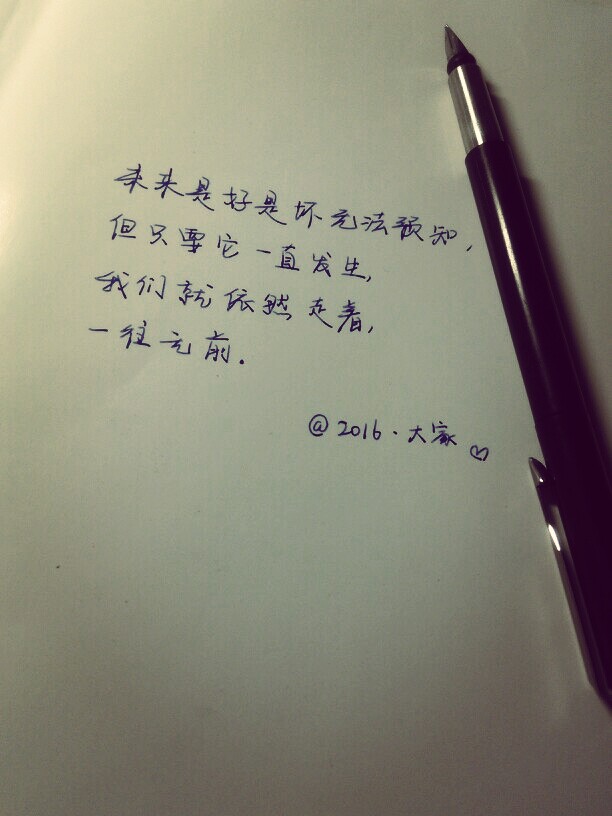 未来是好是坏无法预知,
但只要它一直发生,
我们就依然走着,
一往无前.
@2016.大家♡